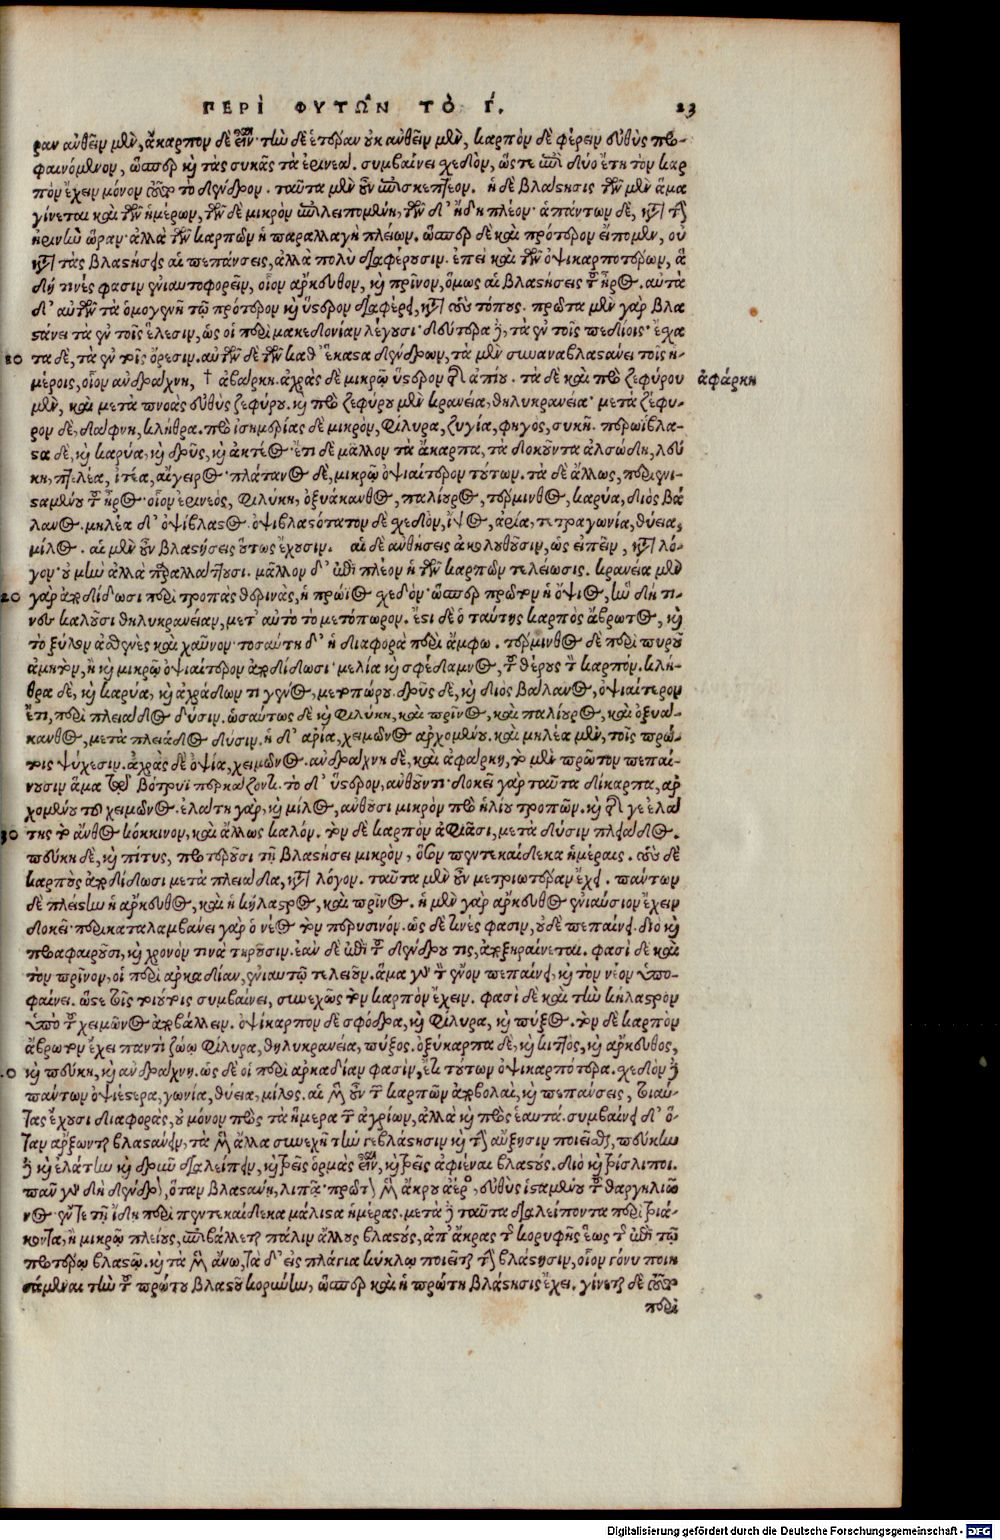 ΠΕΡὶ ΦΥΤΩ͂Ν ΤῸ Γ΄. 23
ραν ἀνθεῖν μὲν, ἄκαρπον δὲ εἶναι· τὴν δὲ ἑτέραν οὐκ ἀνθεῖν μὲν, καρπὸν δὲ φέρειν εὐθὺς προ-
φαινόμενον, ὥσπερ καὶ τὰς συκᾶς τὰ ἐρινεά. συμβαίνει σχεδὸν, ὥςτε ἐπὶ δύο ἔτη τὸν καρ
πὸν ἔχειν μόνον τοῦτο τὸ δένδρον. ταῦτα μὲν οὖν ἐπισκεπτέον. ἡ δὲ βλάστησις τῶν μὲν ἅμα
γίνεται καὶ τῶν ἡμέρων, τῶν δὲ μικρὸν ἐπιλειπομένη, τῶν δ' ἤδη πλέον· ἁπάντων δὲ, κατὰ τὴν
ἠρινὴν ὥραν· ἀλλὰ τῶν καρπῶν ἡ παραλλαγὴ πλείων. ὥσπερ δὲ καὶ πρότερον εἴπομεν, οὐ
κατὰ τὰς βλαστήσεις αἱ πεπάνσεις, ἀλλὰ πολὺ διαφέρουσιν. ἐπεὶ καὶ τῶν ὀψικαρποτέρων, ἃ
δή τινές φασιν ἐνιαυτοφορεῖν, οἷον ἄρκευθον, καὶ πρῖνον, ὅμως αἱ βλαστήσεις τοῦ ἦρος. αὐτὰ
δ' αὑτῶν τὰ ὁμογενῆ τῷ πρότερον καὶ ὕστερον διαφέρει, κατὰ τοὺς τόπους. πρῶτα μὲν γὰρ βλα
στάνει τὰ ἐν τοῖς ἕλεσιν, ὡς οἱ περὶ μακεδονίαν λέγουσι· δεύτερα δὲ, τὰ ἐν τοῖς πεδίοις· ἔσχα
10 τα δὲ, τὰ ἐν τοῖς ὄρεσιν. αὐτῶν δὲ τῶν καθ' ἕκαστα δένδρων, τὰ μὲν συναναβλαστάνει τοῖς ἡ-
μέροις, οἷον ἀνδράχνη, † ἀβάρκη. ἀχρὰς δὲ μικρῷ ὕστερον τῆς ἀπίου. τὰ δὲ καὶ πρὸ ζεφύρου ἀφάρκη
μὲν, καὶ μετὰ πνοὰς εὐθὺς ζεφύρου. καὶ πρὸ ζεφύρου μὲν κρανεία, θηλυκρανεία· μετὰ ζέφυ-
ρον δὲ, δάφνη, κλήθρα. πρὸ ἰσημερίας δὲ μικρὸν, φίλυρα, ζυγία, φηγὸς, συκῆ. πρωΐβλα-
στα δὲ, καὶ καρύα, καὶ δρῦς, καὶ ἀκτέος· ἔτι δὲ μᾶλλον τὰ ἄκαρπα, τὰ δοκοῦντα ἀλσώδη, λεύ
κη, πτελέα, ἰτέα, αἴγειρος· πλάτανος δὲ, μικρῷ ὀψιαίτερον τούτων. τὰ δὲ ἄλλως, περὶ ἐνι-
σταμένου τοῦ ἦρος· οἷον ἐρινεὸς, φιλύκη, ὀξυάκανθος, παλίουρος, τέρμινθος, καρύα, διὸς βά
λανος. μηλέα δ' ὀψίβλαστος· ὀψιβλαστότατον δὲ σχεδὸν, ἴψος, ἀρία, τετραγωνία, θύεια,
μίλος. αἱ μὲν οὖν βλαστήσεις οὕτως ἔχουσιν. αἱ δὲ ἀνθήσεις ἀκολουθοῦσιν, ὡς εἰπεῖν, κατὰ λό-
γον· οὐ μὴν ἀλλὰ παραλλάττουσι. μᾶλλον δ' ἔτι πλέον ἡ τῶν καρπῶν τελείωσις. κρανεία μὲν
20 γὰρ ἀποδίδωσι περὶ τροπὰς θερινὰς, ἡ πρώϊος σχεδὸν· ὥσπερ πρῶτον ἡ ὄψιος, ἣν δή τι-
νες καλοῦσι θηλυκρανείαν, μετ' αὐτὸ τὸ μετόπωρον. ἔστι δὲ ὁ ταύτης καρπὸς ἄβρωτος, καὶ
τὸ ξύλον ἀσθενὲς καὶ χαῦνον· τοσαύτη δ' ἡ διαφορὰ περὶ ἄμφω. τέρμινθος δὲ περὶ πυροῦ
ἀμητὸν, ἢ καὶ μικρῷ ὀψιαίτερον ἀποδίδωσι· μελία καὶ σφένδαμνος, τοῦ θέρους τὸν καρπόν. κλή-
θρα δὲ, καὶ καρύα, καὶ ἀχράδων τι γένος, μετοπώρου. δρῦς δὲ, καὶ διὸς βάλανος, ὀψιαίτερον
ἔτι, περὶ πλειάδος δύσιν. ὡσαύτως δὲ καὶ φιλύκη, καὶ πρῖνος, καὶ παλίουρος, καὶ ὀξυά-
κανθος, μετὰ πλειάδος δύσιν. ἡ δ' ἀρία, χειμῶνος ἀρχομένου. καὶ μηλέα μὲν, τοῖς πρώ-
τοις ψύχεσιν. ἀχρὰς δὲ ὀψία, χειμῶνος. ἀνδράχνη δὲ, καὶ ἀφάρκη, τὸ μὲν πρῶτον πεπαί-
νουσιν ἅμα τῷ βότρυϊ περκάζοντι. τὸ δ' ὕστερον, ἀνθοῦντι· δοκεῖ γὰρ ταῦτα δίκαρπα, ἀρ
χομένου τοῦ χειμῶνος. ἐλάτη γὰρ, καὶ μίλος, ἀνθοῦσι μικρὸν πρὸ ἡλίου τροπῶν. καὶ τῆς γε ἐλά
30 της τὸ ἄνθος κόκκινον, καὶ ἄλλως καλόν. τὸν δὲ καρπὸν ἀφιᾶσι, μετὰ δύσιν πλειάδος.
πεύκη δὲ, καὶ πίτυς, προτεροῦσι τῇ βλαστήσει μικρὸν, ὅσον πεντεκαίδεκα ἡμέραις. τοὺς δὲ
καρποὺς ἀποδίδωσι μετὰ πλειάδα, κατὰ λόγον. ταῦτα μὲν οὖν μετριωτέραν ἔχει. πάντων
δὲ πλείστην ἡ ἄρκευθος, καὶ ἡ κήλαστρος, καὶ πρῖνος. ἡ μὲν γὰρ ἄρκευθος ἐνιαύσιον ἔχειν
δοκεῖ· περικαταλαμβάνει γὰρ ὁ νέος τὸν περυσινόν. ὡς δέ τινές φασιν, οὐδὲ πεπαίνει. διὸ καὶ
προαφαιροῦσι, καὶ χρόνον τινὰ τηροῦσιν. ἐὰν δὲ ἐπὶ τοῦ δένδρου τις, ἀποξηραίνεται. φασὶ δὲ καὶ
τὸν πρῖνον, οἱ περὶ ἀρκαδίαν, ἐνιαυτῷ τελειοῦν. ἅμα γὰρ τὸν ἔνον πεπαίνει, καὶ τὸν νέον ὑπο-
φαίνει. ὥστε τοῖς τοιούτοις συμβαίνει, συνεχῶς τὸν καρπὸν ἔχειν. φασὶ δὲ καὶ τὴν κήλαστρον
ὑπὸ τοῦ χειμῶνος ἀποβάλλειν. ὀψίκαρπον δὲ σφόδρα, καὶ φίλυρα, καὶ πύξος. τὸν δὲ καρπὸν
ἄβρωτον ἔχει παντὶ ζώῳ φίλυρα, θηλυκρανεία, πύξος. ὀξύκαρπα δὲ, καὶ κιττὸς, καὶ ἄρκευθος,
40 καὶ πεύκη, καὶ ἀνδράχνη. ὡς δὲ οἱ περὶ ἀρκαδίαν φασὶν, ἔτι τούτων ὀψικαρπότερα. σχεδὸν δὲ
πάντων ὀψιέστερα, γωνία, θύεια, μίλος. αἱ μὲν οὖν τῶν καρπῶν ἀποβολαὶ, καὶ πεπάνσεις, τοιαύ-
τας ἔχουσι διαφορὰς, οὐ μόνον πρὸς τὰ ἥμερα τῶν ἀγρίων, ἀλλὰ καὶ πρὸς ἑαυτά. συμβαίνει δ' ὅ-
ταν ἄρξωνται βλαστάνειν, τὰ μὲν ἄλλα συνεχῆ τήν τε βλάστησιν καὶ τὴν αὔξησιν ποιεῖσθαι, πεύκην
δὲ καὶ ἐλάτην καὶ δρῦν διαλείπειν, καὶ τρεῖς ὁρμὰς εἶναι, καὶ τρεῖς ἀφιέναι βλαστούς. διὸ καὶ τρίσλιποι.
πᾶν γὰρ δὴ δένδρον, ὅταν βλαστάνῃ, λιπᾷ· πρῶτον μὲν ἄκρου ἀέρος, εὐθὺς ἱσταμένου τοῦ θαργηλιῶ
νος· ἐν δὲ τῇ ἴδῃ περὶ πεντεκαίδεκα μάλιστα ἡμέρας. μετὰ δὲ ταῦτα διαλείποντα περὶ τριά-
κοντα, ἢ μικρῷ πλείους, ἐπιβάλλεται πάλιν ἄλλους βλαστοὺς, ἀπ' ἄκρας τῆς κορυφῆς ἕως τῆς ἐπὶ τῷ
προτέρῳ βλαστῷ. καὶ τὰ μὲν ἄνω, τὰ δ' εἰς πλάγια κύκλῳ ποιεῖται τὴν βλάστησιν, οἷον γόνυ ποιη
σάμεναι τὴν τοῦ πρώτου βλαστοῦ κορυνην, ὥσπερ καὶ ἡ πρώτη βλάστησις ἔχει. γίνεται δὲ τοῦτο
περὶ
Digitalisierung gefördert durch die Deutsche Forschungsgemeinschaft - DFG